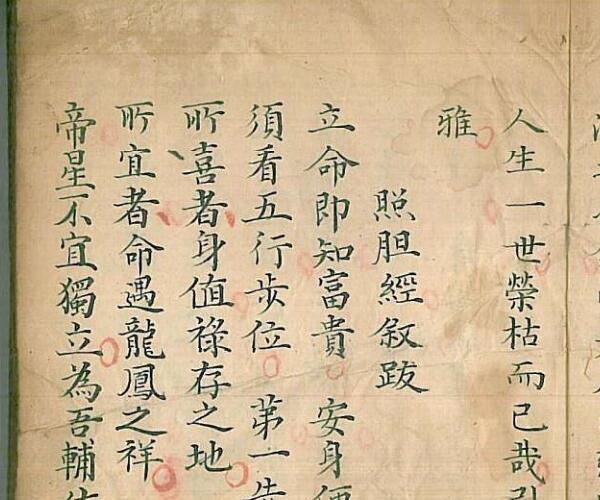 人生一世榮枯而已哉
雅
照胆經叙跋
立命即知富貴 安身
須看五行步位 第一
所喜者身值祿存之地
所宜者命遇龍鳳之祥
帝星不宜獨立為吾輔